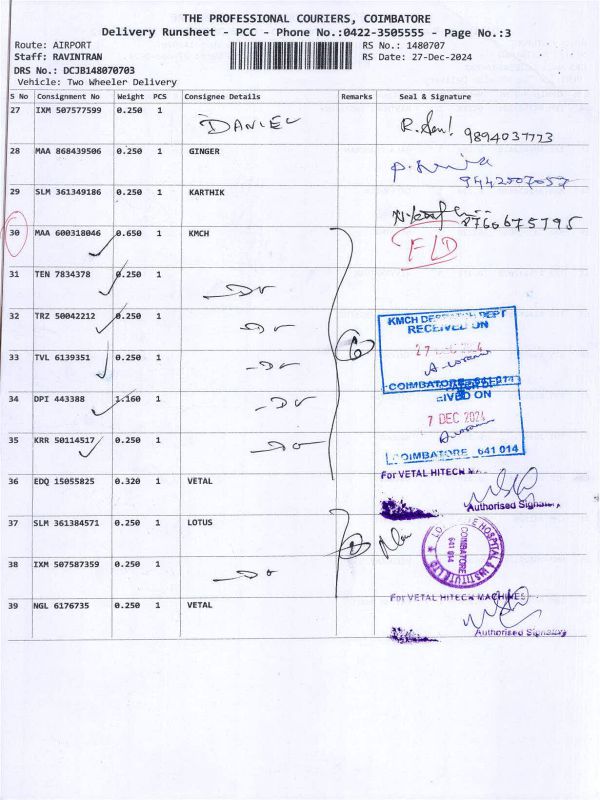 THE PROFESSIONAL COURIERS, COIMBATORE
Delivery Runsheet - PCC - Phone No.:0422-3505555 - Page No.:3
Route: AIRPORT
RS No.: 1480707
Staff: RAVINTRAN
RS Date: 27-Dec-2024
DRS No.: DCJB148070703
Vehicle: Two Wheeler Delivery
S No Consignment No Weight PCS Consignee Details Remarks Seal & Signature
27 IXM 507577599 0.250 1 DANIEL 9894037773
28 MAA 868439506 0.250 1 GINGER
29 SLM 361349186 0.250 1 KARTHIK
8760675795
30 MAA 600318046 0.650 1 KMCH F/D
31 TEN 7834378 0.250 1 Do
32 TRZ 50042212 0.250 1 Do
KMCH DESPATCH DEPT
RECEIVED ON
33 TVL 6139351 0.250 1 Do 6
27 DEC 2024
COIMBATORE 641 014
34 DPI 443388 1.160 1 Do
EIVED ON
7 DEC 2024
35 KRR 50114517 0.250 1 Do
COIMBATORE 641 014
36 EDQ 15055825 0.320 1 VETAL
For VETAL HITECH
Authorised Signatory
37 SLM 361384571 0.250 1 LOTUS 2
HOSPITAL & INSTITUTE LTD
COIMBATORE
641 014
38 IXM 507587359 0.250 1 Do
39 NGL 6176735 0.250 1 VETAL
For VETAL HITECH MACHINES
Authorised Signatory